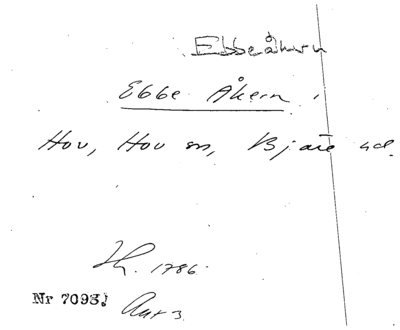 Ebbeåkern
Ebbe Åkern
Hov, Hov sn, Bjäre hd.
1786.
Nr 7093